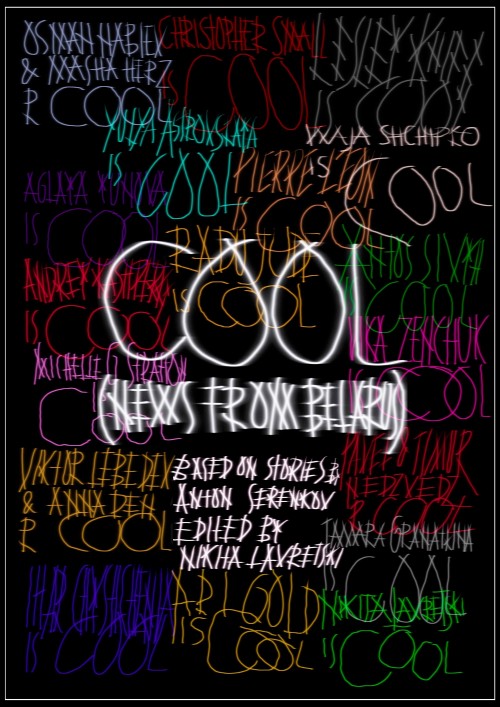 OSMAN NABIEV
& MASHA HERZ
R COOL
CHRISTOPHER SMALL
IS COOL
LESLEY
IS COOL
YULIA
IS COOL
SHCHIPKO
IS COOL
PIERRE LEON
IS COOL
AGLAYA
IS COOL
RADU JUDE
IS COOL
IS COOL
ANDREY
IS COOL
COOL
NIKA ZENCHUK
IS COOL
MICHELLE
IS COOL
(NEWS FROM BELARUS)
VIKTOR LEBEDEV
& ANNA DEN
R COOL
BASED ON STORIES BY
ANTON SERENKOV
EDITED BY
NIKITA LAVRETSKI
TIMUR
R COOL
TAMARA
IS COOL
IHAR
IS COOL
ARI GOLD
IS COOL
NIKITA LAVRETSKI
IS COOL